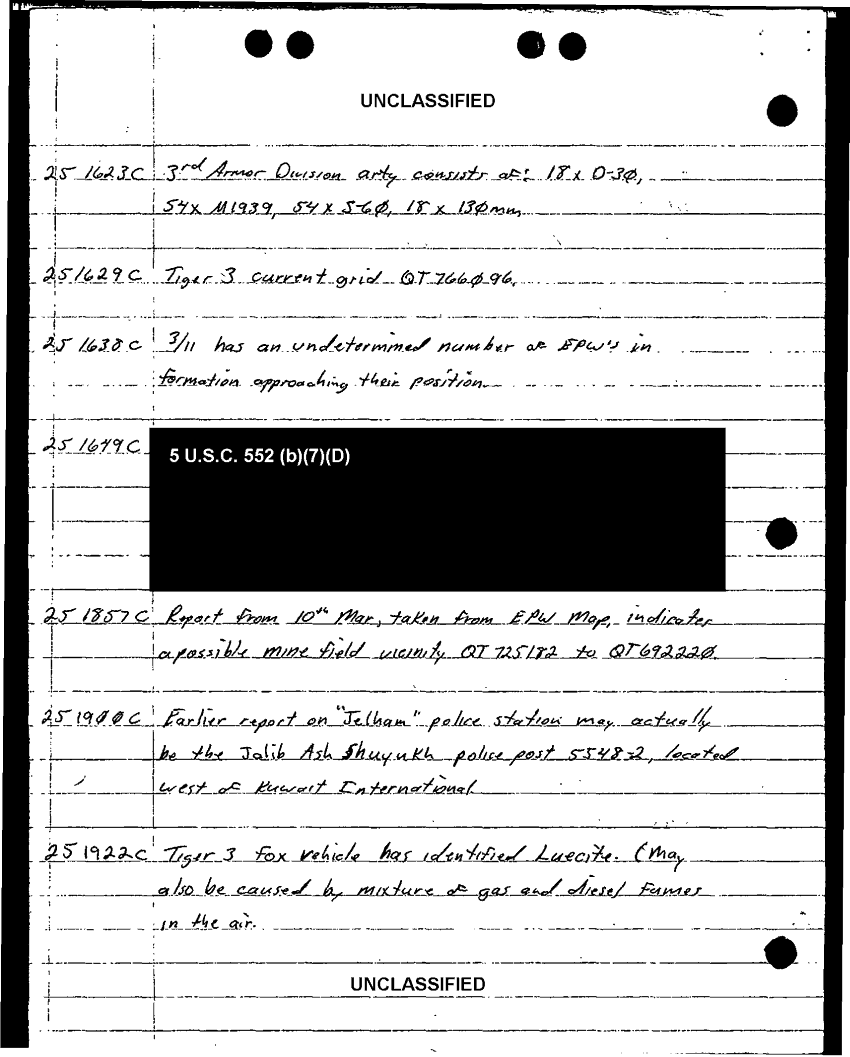 UNCLASSIFIED
251623C 3rd Armor Division arty consists of: 18 x D-30,
54x M1939, 54 x S-60, 18 x 130mm
251629C Tiger 3 current grid QT766096.
251638C 3/11 has an undetermined number of EPW's in
formation approaching their position.
251649C
5 U.S.C. 552 (b)(7)(D)
251857C Report from 10th Mar, taken from EPW Map, indicates
a possible mine field vicinity QT 725182 to QT692220.
251900C Earlier report on "Jelham" police station may actually
be the Jalib Ash Shuyukh police post 5548-2, located
west of Kuwait International
251922C Tiger 3 Fox vehicle has identified Luecite. (May
also be caused by mixture of gas and diesel fumes
in the air.
UNCLASSIFIED